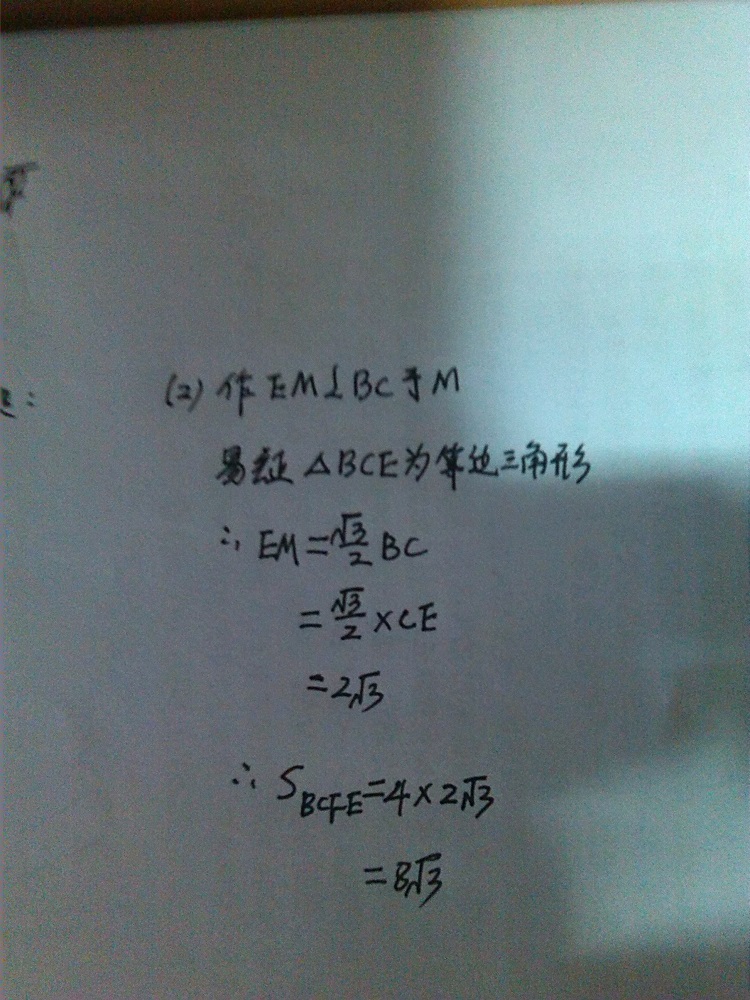 (2) 作 EM⊥BC于M
易证 △BCE为等边三角形
∴ EM=√3/2 BC
=√3/2 ×CE
=2√3
∴ S_BCFE=4×2√3
=8√3